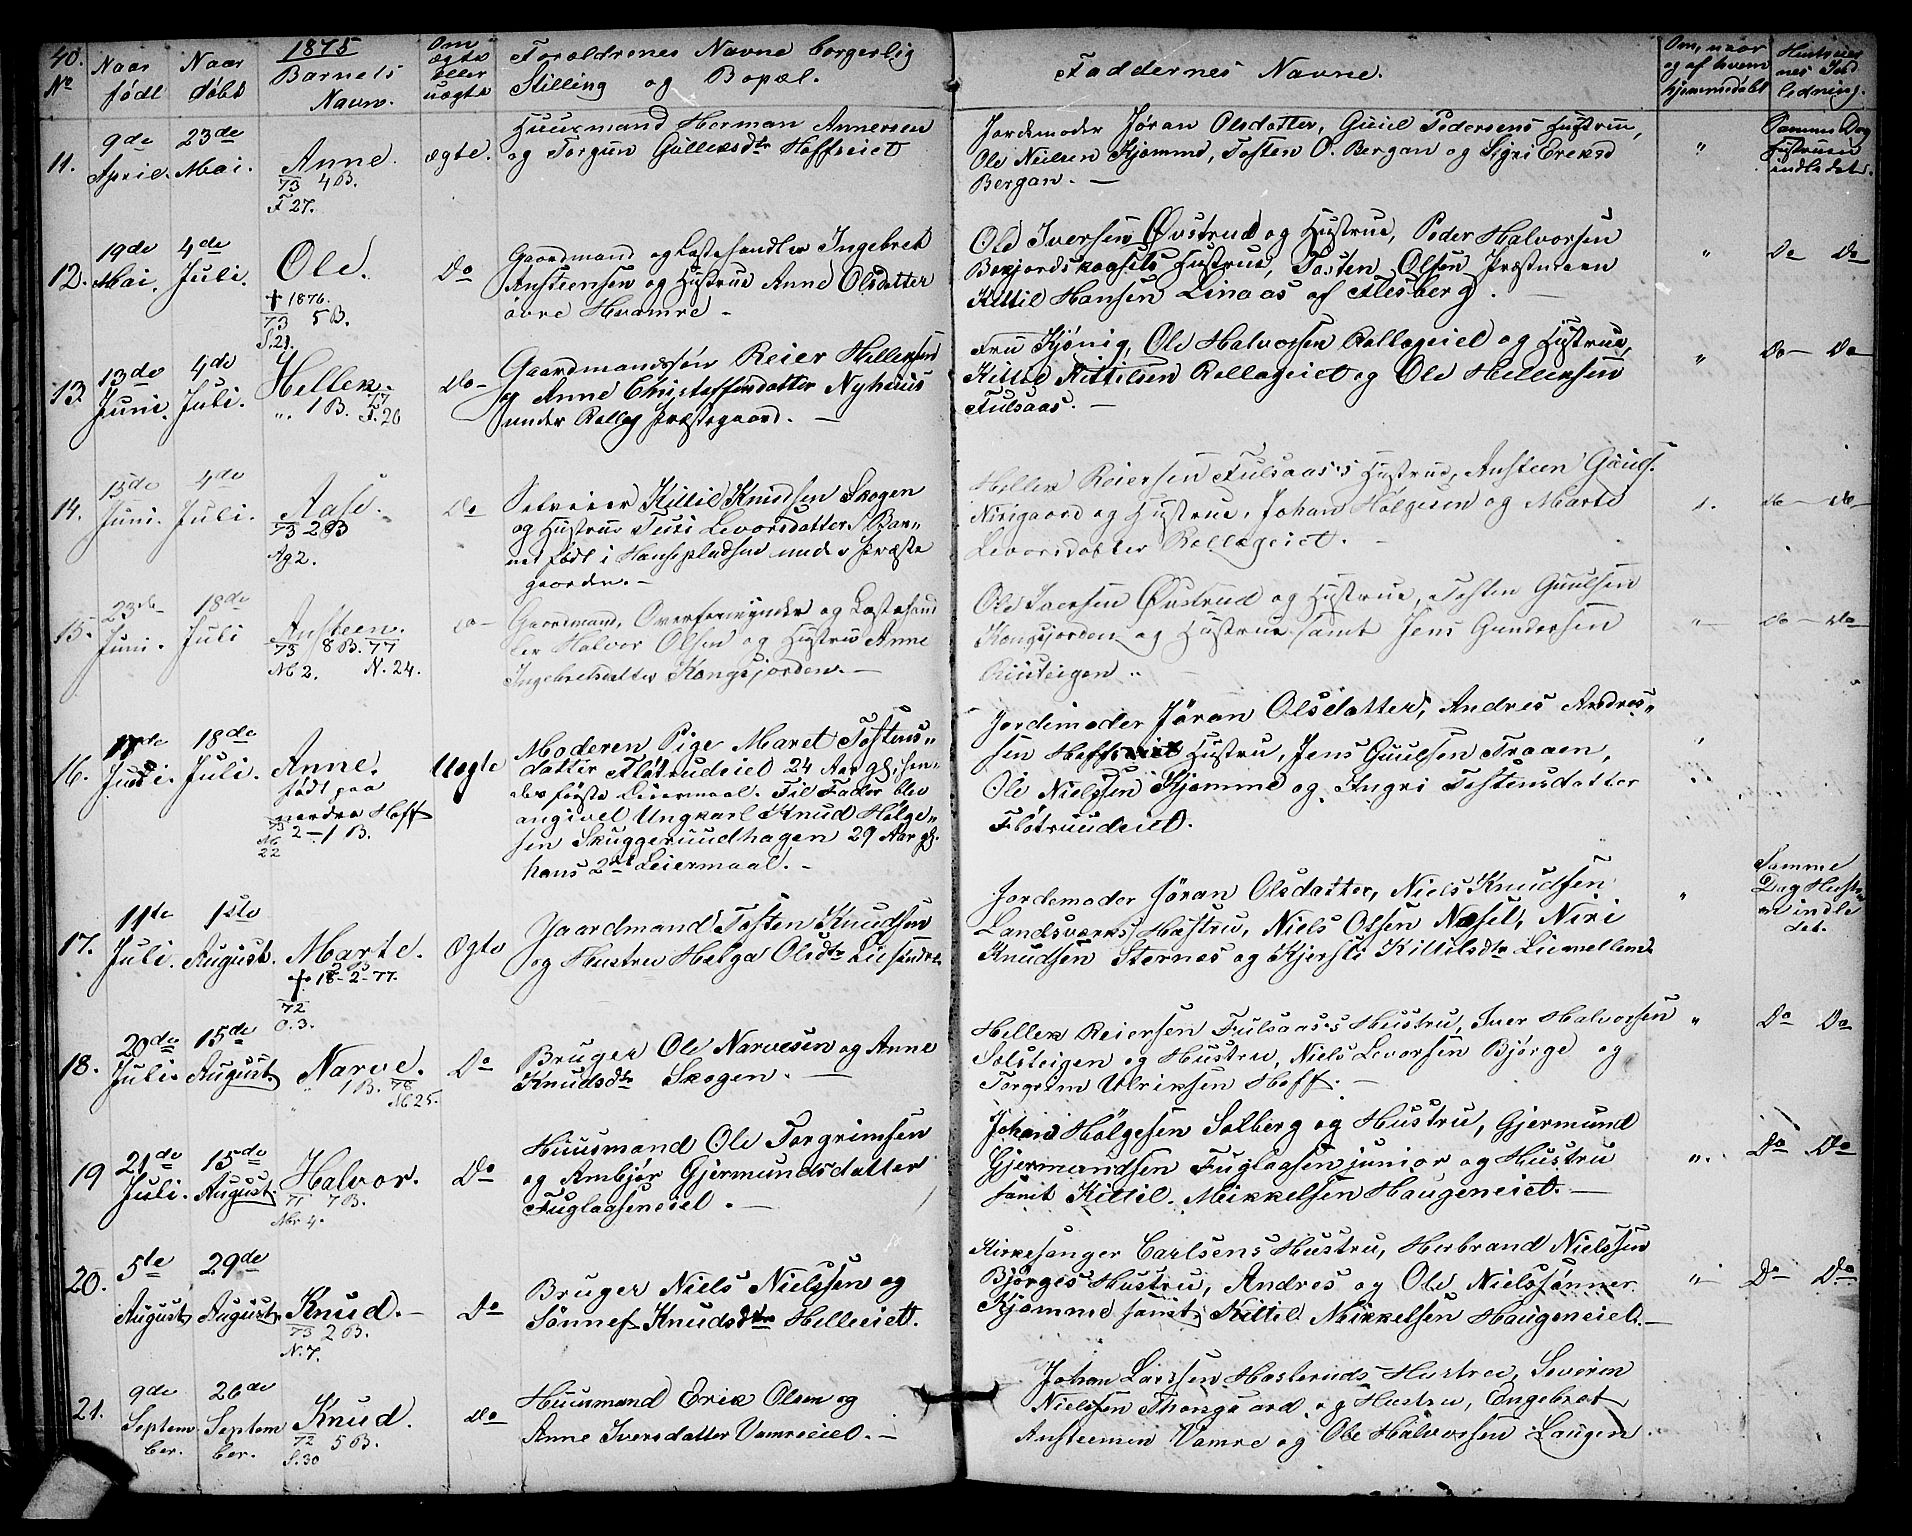 40.
No
Naar
födt
Naar
döbt
1875
Barnets
Navn.
Om
ægte
eller
uægte
Forældrenes Navne borgerlig
Stilling og Bopæl.
Faddernes Navne.
Om, naar
og af hvem
hjemmedöbt
11.
9de
April.
23de
Mai.
Anne.
73 4B.
F 27.
ægte.
Huusmand Herman Annersen
og Torgun Gulleksdtr Hoffseiet
Jordemoder Jöran Olsdatter, Guul Pedersens Hustrue,
Ole Nielsen Kjomme, Tosten O. Bergan og Sigri Ereksd
Bergan. —
"
Samme Dag
Hustruen
indledet.
12.
19de
Mai.
4de
Juli.
Ole.
† 1876.
73 5B.
S.21.
Do
Gaardmand og Lastehandler Ingebret
Anstensen og Hustrue Anne Olsdatter
övre Hvamre —
Ole Iversen Övstrud og Hustrue, Peder Halvorsen
Hustrue, Tosten Olsen Præstmoen
Kittil Hansen Linaas af Flesberg. —
"
Do Do
13.
13de
Juni.
4de
Juli.
Hellek.
" 1B. 77
F.20
Do—
Gaardmandssön Reier Hellersen
og Anne Christoffersdatter Nyhuus
under Rollag Præstegaard. —
Fru Kjönig, Ole Halvorsen Rollageiet og Hustrue,
Kittil Kittilsen Rollageiet og Ole Hellersen
Fulsaas. —
"
Do— Do—
14.
15de
Juni.
4de
Juli.
Aase.
73 2B
Ag2.
Do
Selveier Kittil Knudsen Skogen
og Hustrue Turi Levorsdatter. Bar-
net födt i Hansepladsen under Præste
gaarden. —
Hellek Reiersen Fulsaas's Hustrue, Ansteen Guuls.
Nirigaard og Hustrue, Johan Holgesen og Marte
Levorsdatter Rollageiet. —
Do— Do—
15.
23de
Juni.
18de
Juli
Ansteen.
73 8B. 77
Mb2. N.24.
Do—
Gaardmand, Overformynder og Lastehand
ler Halvor Olsen og Hustrue Anne
Ingebretsdatter Kongsjorden. —
Ole Iversen Övstrud og Hustrue, Tosten Guulsen
Kongsjorden og Hustrue samt Jens Gundersen
Riisteigen "
"
Do— Do
16.
Juli.
18de
Juli.
Anne.
födt paa
nordre Hoff
73 2—1B.
22
Uægte
Moderen Pige Maret Tostens-
datter Flötrudeiet 24 Aar gl, hen-
des förste Leiermaal. Til Fader blev
angivet Ungkarl Knud Holge-
sen Skuggeruudhagen 29 Aar gl.
hans 2det Leiermaal. —
Jordemoder Jöran Olsdatter, Andres Andres-
sen Hoffseiet Hustru, Jens Guulsen Traaen,
Ole Nielssen Kjomme og Ingri Tostensdatter
Flötruudeiet.
17.
11te
Juli.
1ste
August.
Marte.
† 18-2-77.
72
O.3.
Ægte
Gaardmand Tosten Knudsen
og Hustru Helga Olsdtr
Jordemoder Jöran Olsdatter, Niels Knudsen
Landsværks Hustru, Niels Olsen Næsel, Niri
Knudsen Sternes og Kjersti Kittilsdtr Liemellem
"
Samme
Dag Hustru
en indle
det.
18.
20de
Juli.
15de
August.
Narve.
" 1B. 78
Mb25.
Do
Bruger Ole Narvesen og Anne
Knudsdtr Skogen. —
Hellek Reiersen Fulsaas's Hustru, Iver Halvorsen
Solsteigen og Hustru, Niels Levorsen Björge og
Torgrim Ulriksen Hoff. —
"
Do Do
19
21de
Juli.
15de
August.
Halvor.
71 7B.
Mbr 4.
Do
Huusmand Ole Torgrimsen
og Ambjör Gjermundsdatter
Fuglaaseneiet. —
Johan Holgesen Solberg og Hustru, Gjermund
Gjermundsen Fuglaasen junior og Hustru
samt Kittil Mikkelsen Haugeneiet. —
"
Do Do
20.
5te
August
29de
August.
Knud. —
73 2B.
N.7.
Do
Bruger Niels Nielssen og
Sönnef Knudsdtr Helleeiet.
Kirkesanger Carlsens Hustru, Herbrand Nielssen
Björges Hustru, Andres og Ole Nielssönner
Kjomme samt Kittil Mikkelsen Haugeneiet. —
"
Do Do
21.
9de
Septem
ber.
26de
Septem
ber.
Knud.
72 5B.
S.30
Do
Huusmand Erik Olsen og
Anne Iversdatter Vamreeiet. —
Johan Larssen Hasleruds Hustru, Severin
Nielssen Thongaard og Hustru, Engebret
Ansteensen Vamre og Ole Halvorsen Laugen